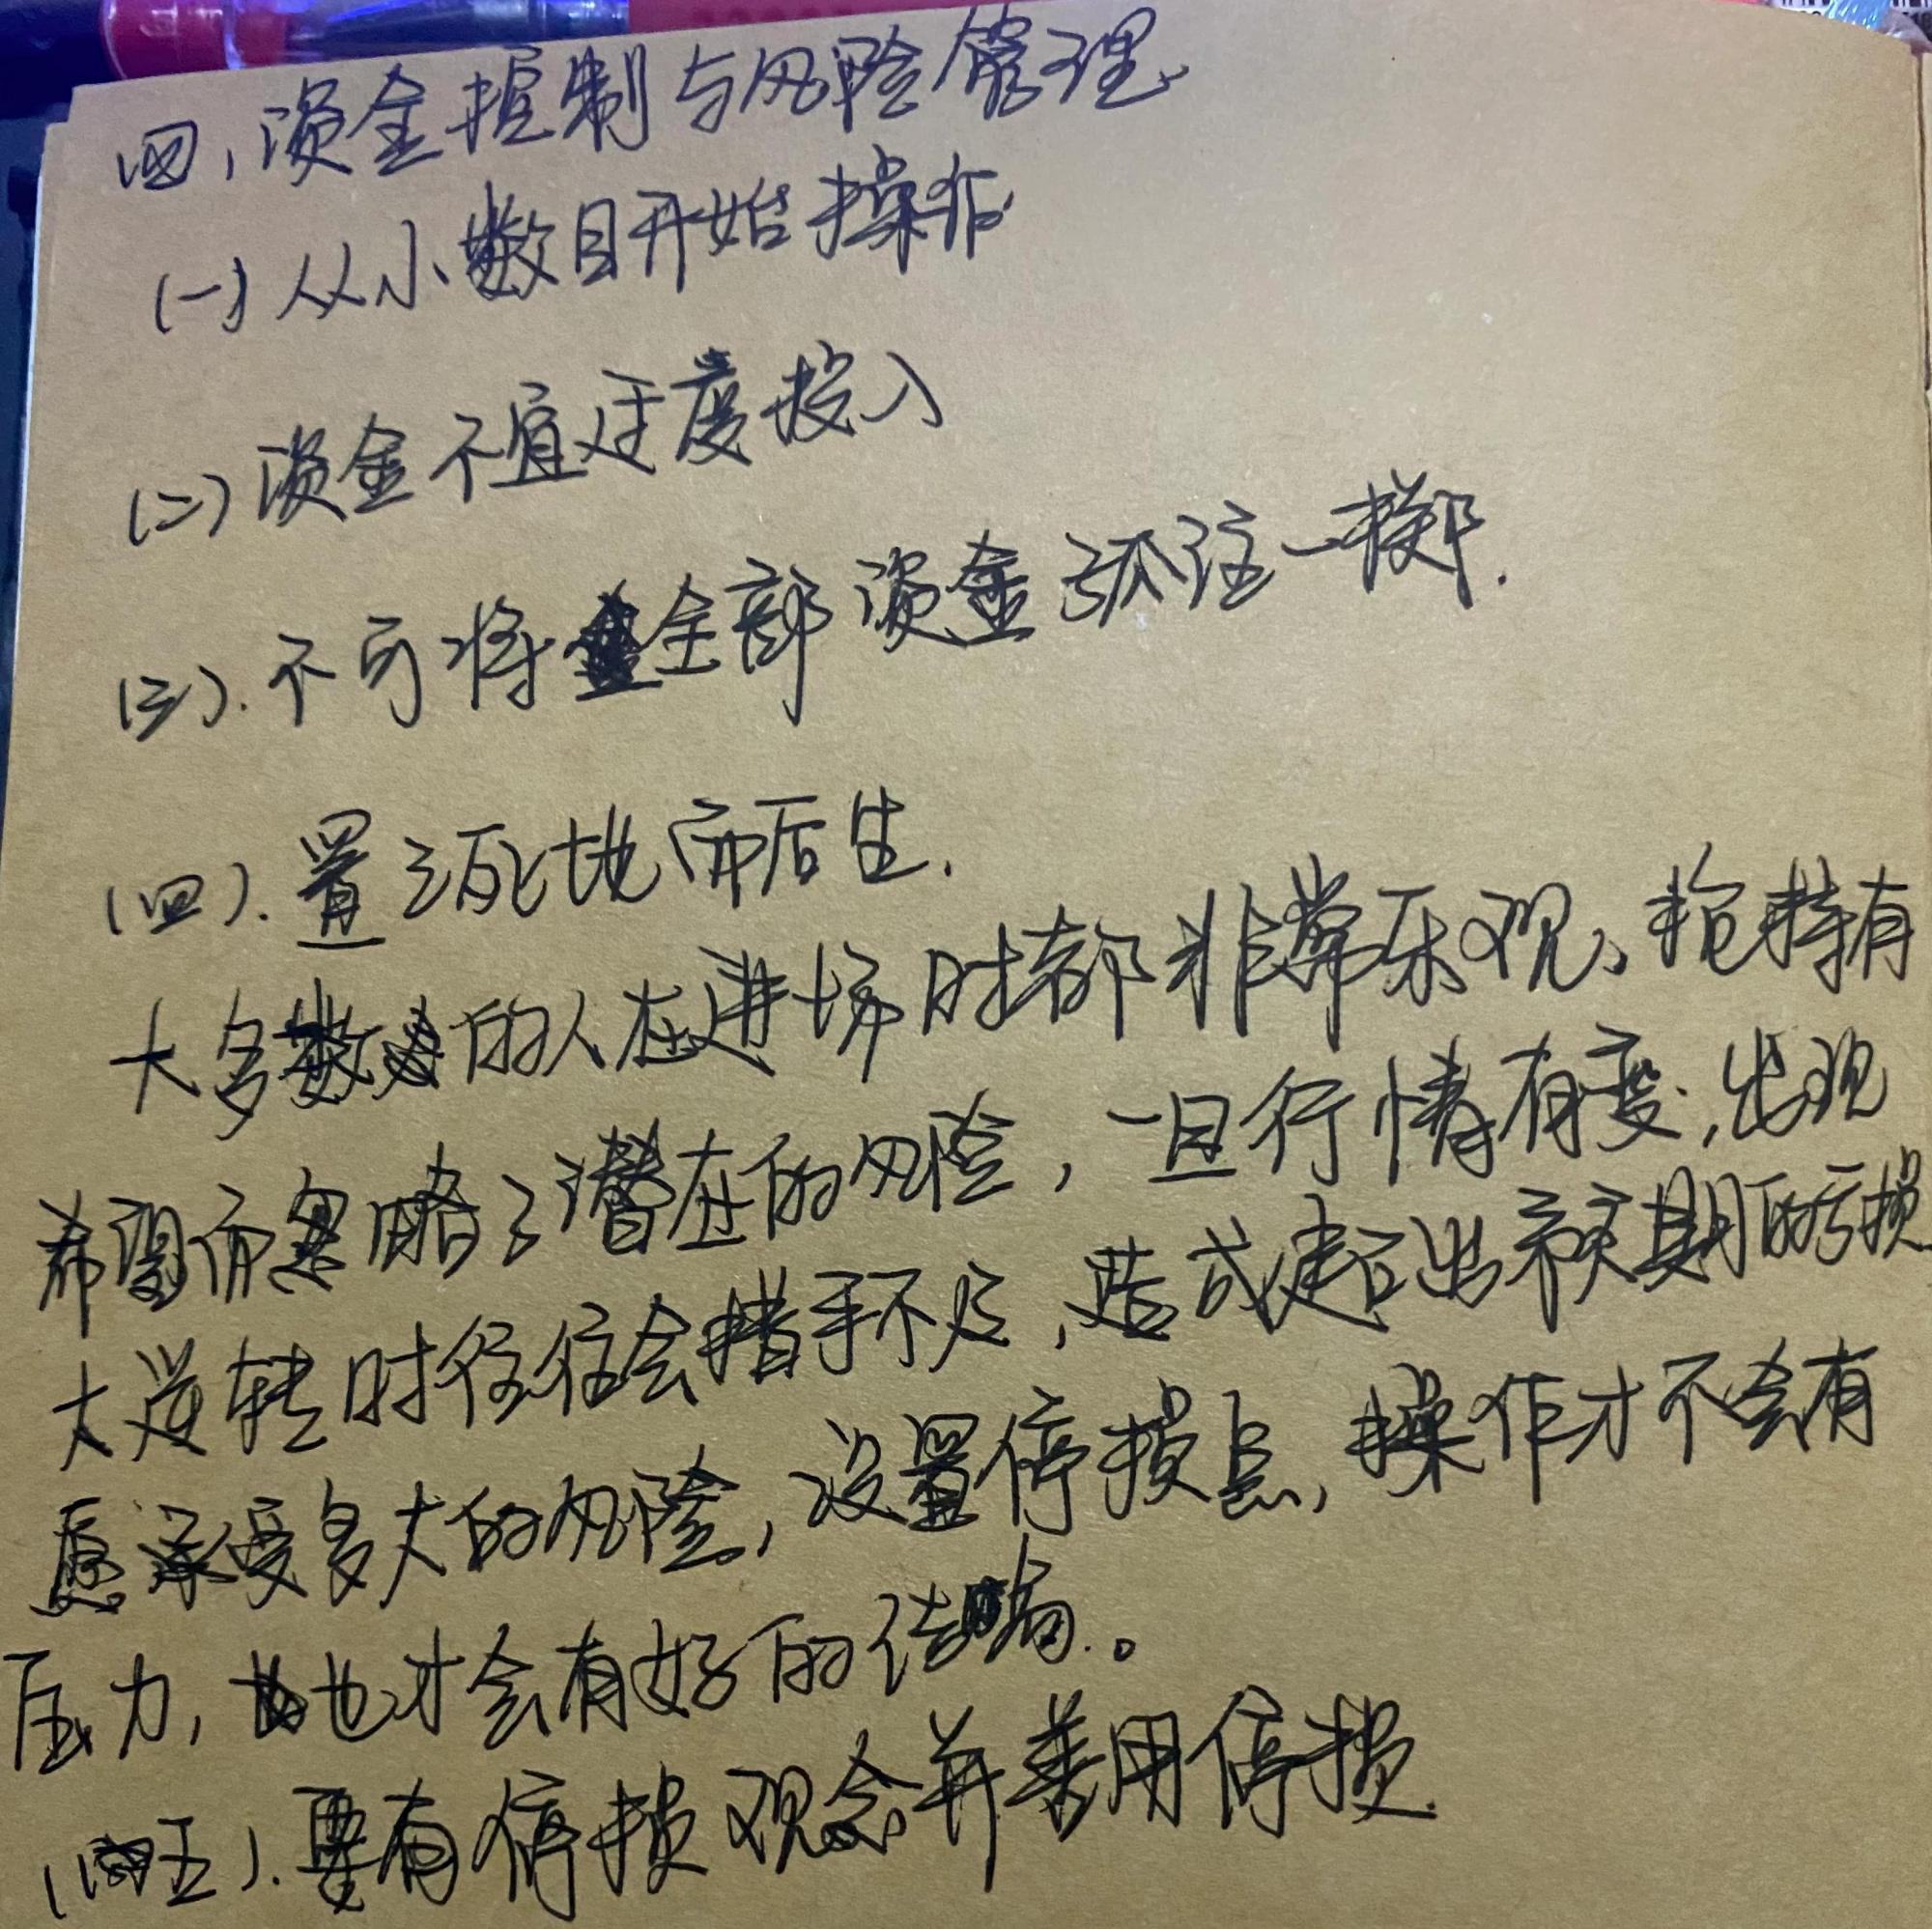 四，资金控制与风险管理
(一) 从小数目开始操作
(二) 资金不宜过度投入
(三). 不可将全部资金孤注一掷.
(四). 置之死地而后生.
大多数的人在进场时都非常乐观、抱持有
希望而忽略了潜在的风险，一旦行情有变,出现
大逆转时往往会措手不及，造成超出预期的亏损
愿承受多大的风险，设置停损点，操作才不会有
压力，也才会有好的结局。
(五). 要有停损观念并善用停损.